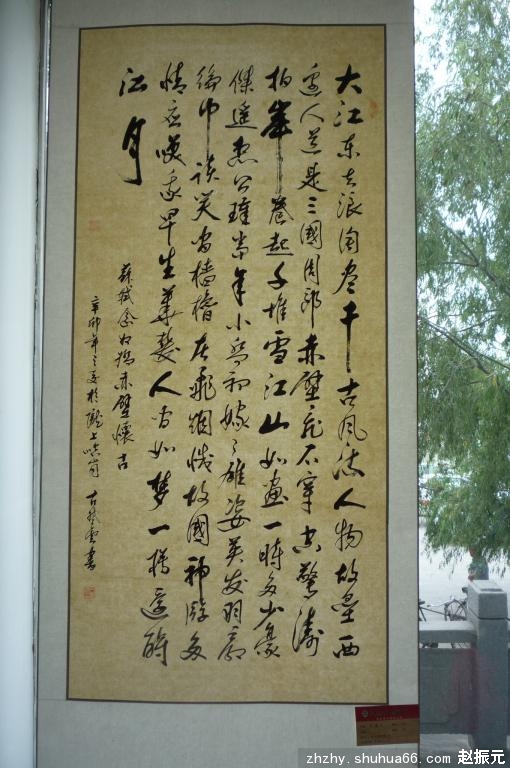 大江东去浪淘尽千古风流人物故垒西
边人道是三國周郎赤壁乱石穿空驚濤
拍岸卷起千堆雪江山如画一時多少豪
傑遥想公瑾当年小乔初嫁了雄姿英发羽扇
纶巾谈笑间樯橹灰飞烟灭故國神游多
情应咲我早生華髮人间如梦一樽还酹
江月
蘇軾念奴嬌赤壁懷古
辛卯年之夏於陇上
zhzhy.shuhua66.com 赵振元